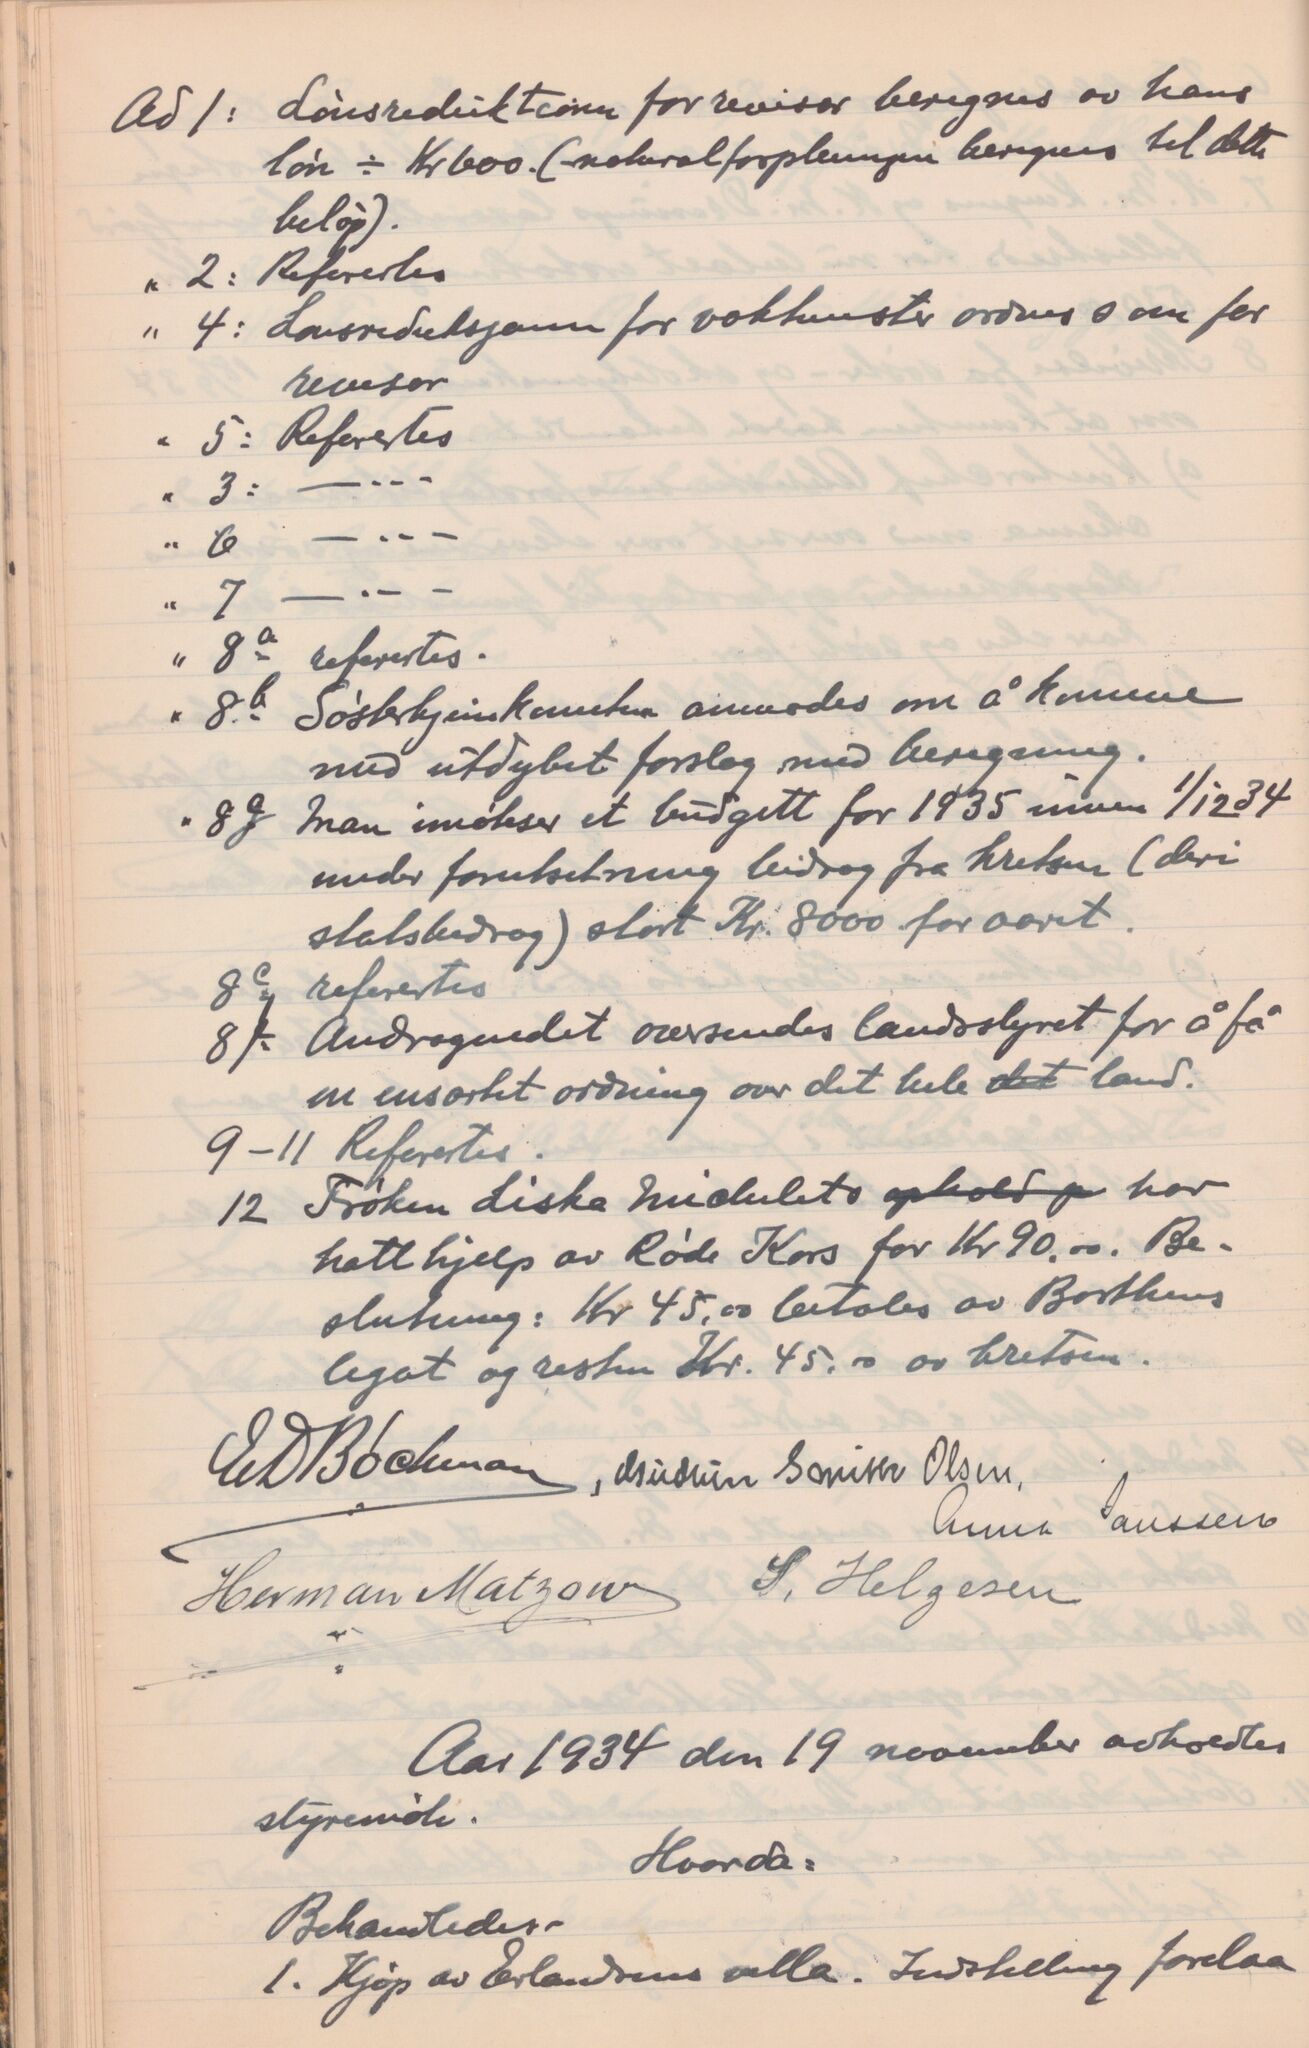 Ad 1: Lönsreduktionen for revisor beregnes av hans
lön ÷ Kr 600. (naturalforpleiningen beregnes til dette
beløp).
" 2: Refereres
" 4: Lönsreduksjonen for vaktmester ordnes som for
revisor
" 5: Refereres
" 3: — - - -
" 6 — - - -
" 7 — - - -
" 8a refereres.
" 8b Søsterhjemkomiteen anmodes om å komme
med utdybet forslag med beregning.
" 8g Man imøteser et budgett for 1935 innen 1/12 34
under forutsetning bidrag fra kretsen (deri
statsbidrag) stort Kr. 8000 for aaret.
8c refereres
8f Andragendet oversendes landsstyret for å få
en ensartet ordning over det hele det land.
9-11 Refereres.
12 Frøken Liska ophold p har
hatt hjelp av Røde Kors for Kr 90,00. Be-
slutning: Kr 45,00 betales av Barthens
legat og resten Kr. 45.00 av kretsen.
E D Bøckman, Olsen,
Anna Janssen
Herman Matzow S. Helgesen
Aar 1934 den 19 november avholdtes
styremøte.
Hvorda:
Behandledes:
1. Kjøp av Erlandsens villa. Indstilling forelaa